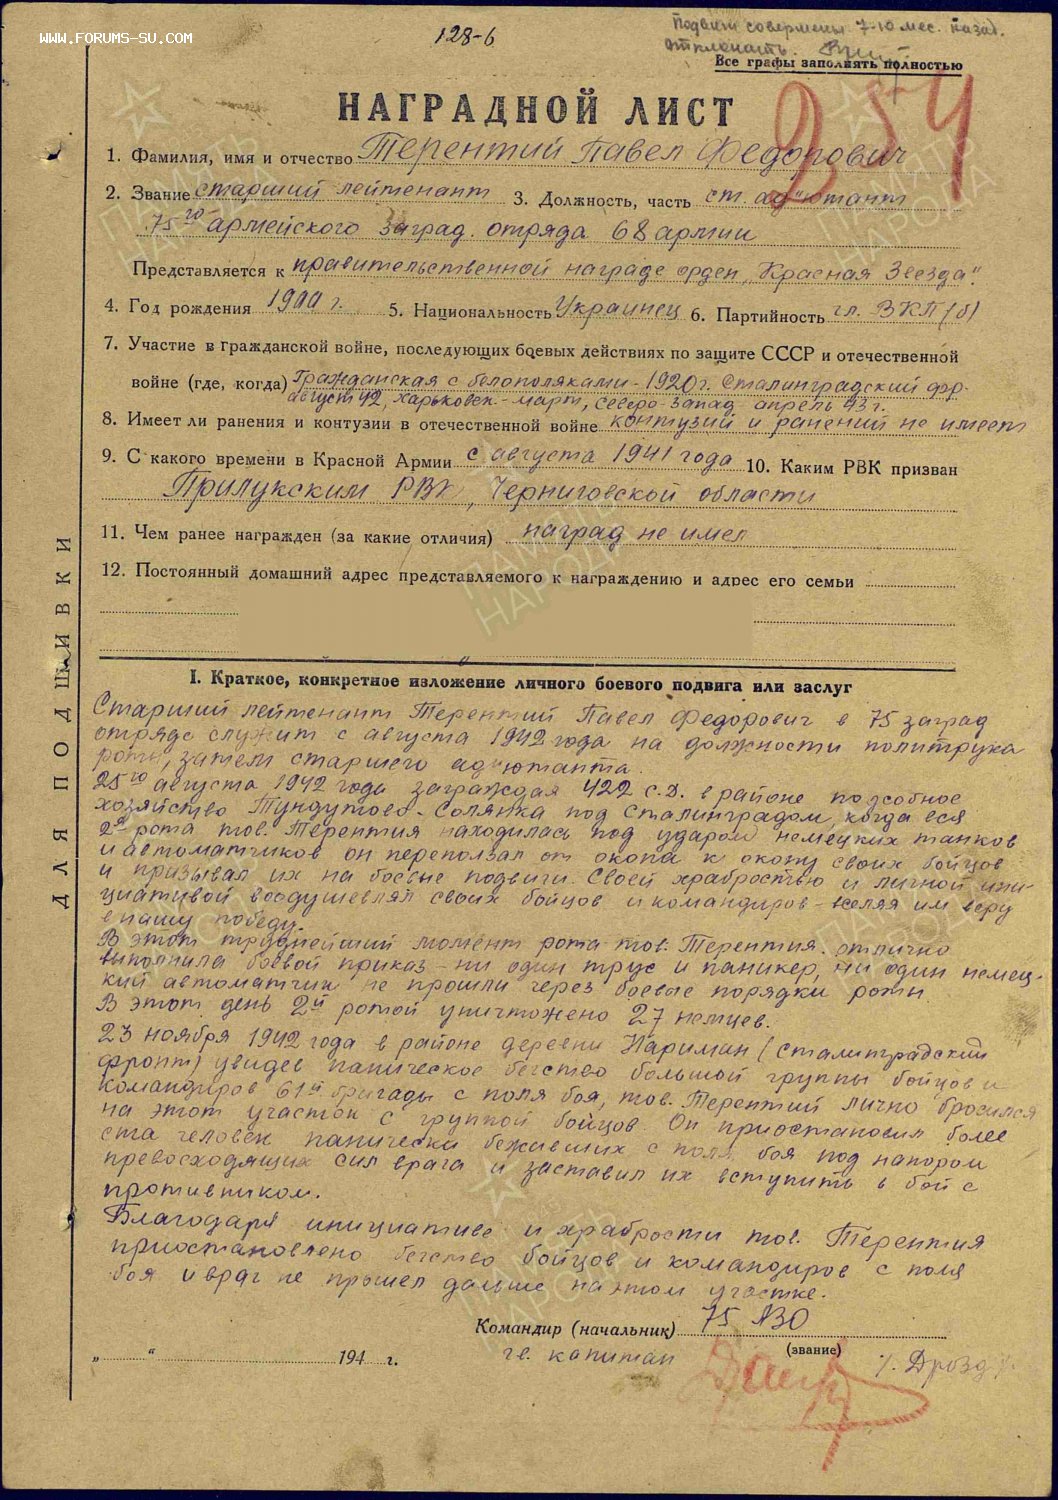 WWW.FORUMS-SU.COM
128-б
Подвиг совершены 7-10 мес. назад.
Отклонить.
Все графы заполнять полностью
254
НАГРАДНОЙ ЛИСТ
1. Фамилия, имя и отчество Терентий Павел Федорович
2. Звание старший лейтенант 3. Должность, часть ст. ад"ютант
75го армейского заград. отряда 68 армии
Представляется к правительственной награде орден „Красная Звезда".
4. Год рождения 1900 г. 5. Национальность Украинец 6. Партийность чл. ВКП(б)
7. Участие в гражданской войне, последующих боевых действиях по защите СССР и отечественной
войне (где, когда) Гражданская с белополяками - 1920 г. Сталинградский фр.
август 42, Харьковск - март, Северо-Запад апрель 43 г.
8. Имеет ли ранения и контузии в отечественной войне контузий и ранений не имеет
9. С какого времени в Красной Армии с августа 1941 года 10. Каким РВК призван
Прилукским РВК, Черниговской области
11. Чем ранее награжден (за какие отличия) наград не имел
12. Постоянный домашний адрес представляемого к награждению и адрес его семьи
ДЛЯ ПОДШИВКИ
I. Краткое, конкретное изложение личного боевого подвига или заслуг
Старший лейтенант Терентий Павел Федорович в 75 заград
отряде служит с августа 1942 года на должности политрука
роты, затем старшего адъютанта.
25го августа 1942 года заграждая 422 с.д. в районе подсобное
хозяйство Тундутово - Солянка под Сталинградом, когда вся
2я рота тов. Терентия находилась под ударом немецких танков
и автоматчиков он переползал от окопа к окопу своих бойцов
и призывал их на боевые подвиги. Своей храбростью и личной ини-
циативой воодушевлял своих бойцов и командиров - вселяя им веру
в нашу победу.
В этот труднейший момент рота тов. Терентия отлично
выполнила боевой приказ - ни один трус и паникер, ни один немец-
кий автоматчик не прошли через боевые порядки роты.
В этот день 2й ротой уничтожено 27 немцев.
23 ноября 1942 года в районе деревни Нариман (Сталинградский
фронт) увидев паническое бегство большой группы бойцов и
командиров 61й бригады с поля боя, тов. Терентий лично бросился
на этот участок с группой бойцов. Он приостановил более
ста человек панически бежавших с поля боя под напором
превосходящих сил врага и заставил их вступить в бой с
противником.
Благодаря инициативе и храбрости тов. Терентия
приостановлено бегство бойцов и командиров с поля
боя и враг не прошел дальше на этом участке.
Командир (начальник) 75 АЗО
(звание)
гв. капитан /. Дрозд /.
„ " 194 г.
ПАМЯТЬ НАРОДА